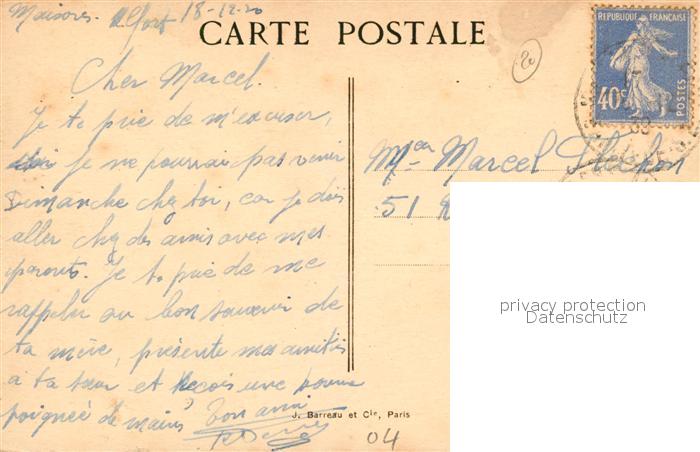 Maisons Alfort 18-12-30
CARTE POSTALE
REPUBLIQUE FRANÇAISE
40c
POSTES
Cher Marcel.
Je te prie de m'excuser,
je ne pourrai pas venir
Dimanche chez toi, car je dois
aller chez des amis avec mes
parents. Je te prie de me
rappeler au bon souvenir de
ta mère, présente mes amitiés
à ta sœur et reçois une bonne
poignée de mains Ton ami
Marcel
51
privacy protection
Datenschutz
J. Barreau et Cie, Paris
04